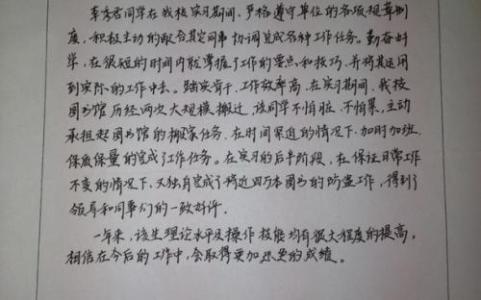 李秀君同学在我校实习期间，严格遵守单位的各项规章制
度，积极主动的配合其它同事协调完成各种工作任务。勤奋好
学，在很短的时间内就掌握了工作的要点和技巧，并将其运用
到实际的工作中去。踏实肯干，工作效率高，在实习期间，我校
图书馆历经两次大规模搬迁，该同学不怕脏、不怕累，主动
承担起图书馆的搬家任务，在时间紧迫的情况下，加时加班，
保质保量的完成了工作任务。在实习的后半阶段，在保证日常工作
不变的情况下，又独自完成了将近四万本图书的防盗工作，得到了
领导和同事们的一致好评。
一年来，该生理论水平及操作技能均有很大程度的提高，
相信在今后的工作中，会取得更加的成绩。